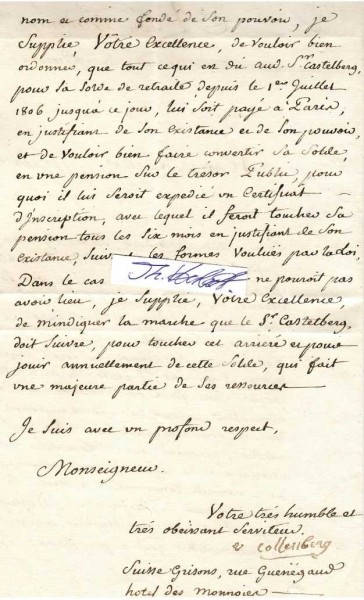 nom et comme fondé de Son pouvoir, je
Supplie, Votre Excellence, de vouloir bien
ordonner, que tout ce qui est dû aud. Sr. Castelberg,
pour Sa Solde de retraite depuis le 1er Juillet
1806 jusqu'à ce jour, lui Soit payé à Paris,
en justifiant de Son Existance et de Son pouvoir,
et de Vouloir bien faire convertir Sa Solde,
en une pension Sur le trésor Public, pour
quoi il lui Seroit expedié un Certificat
d'Inscription, avec lequel il feroit toucher Sa
pension tous les Six mois en justifiant de Son
existance, Suiv les formes Voulues par la Loi,
Dans le cas ne pouroit pas
avoir lieu, je Supplie, Votre Excellence,
de m'indiquer la marche que le Sr. Castelberg,
doit Suivre, pour toucher cet arrieré et pour
jouir annuellement de cette Solde, qui fait
une majeure partie de Ses ressources
Je Suis avec un profond respect,
Monseigneur.
Votre très humble et
très obeissant Serviteur.
Suisse Grisons, rue Guénégaud
hotel des Monnoies